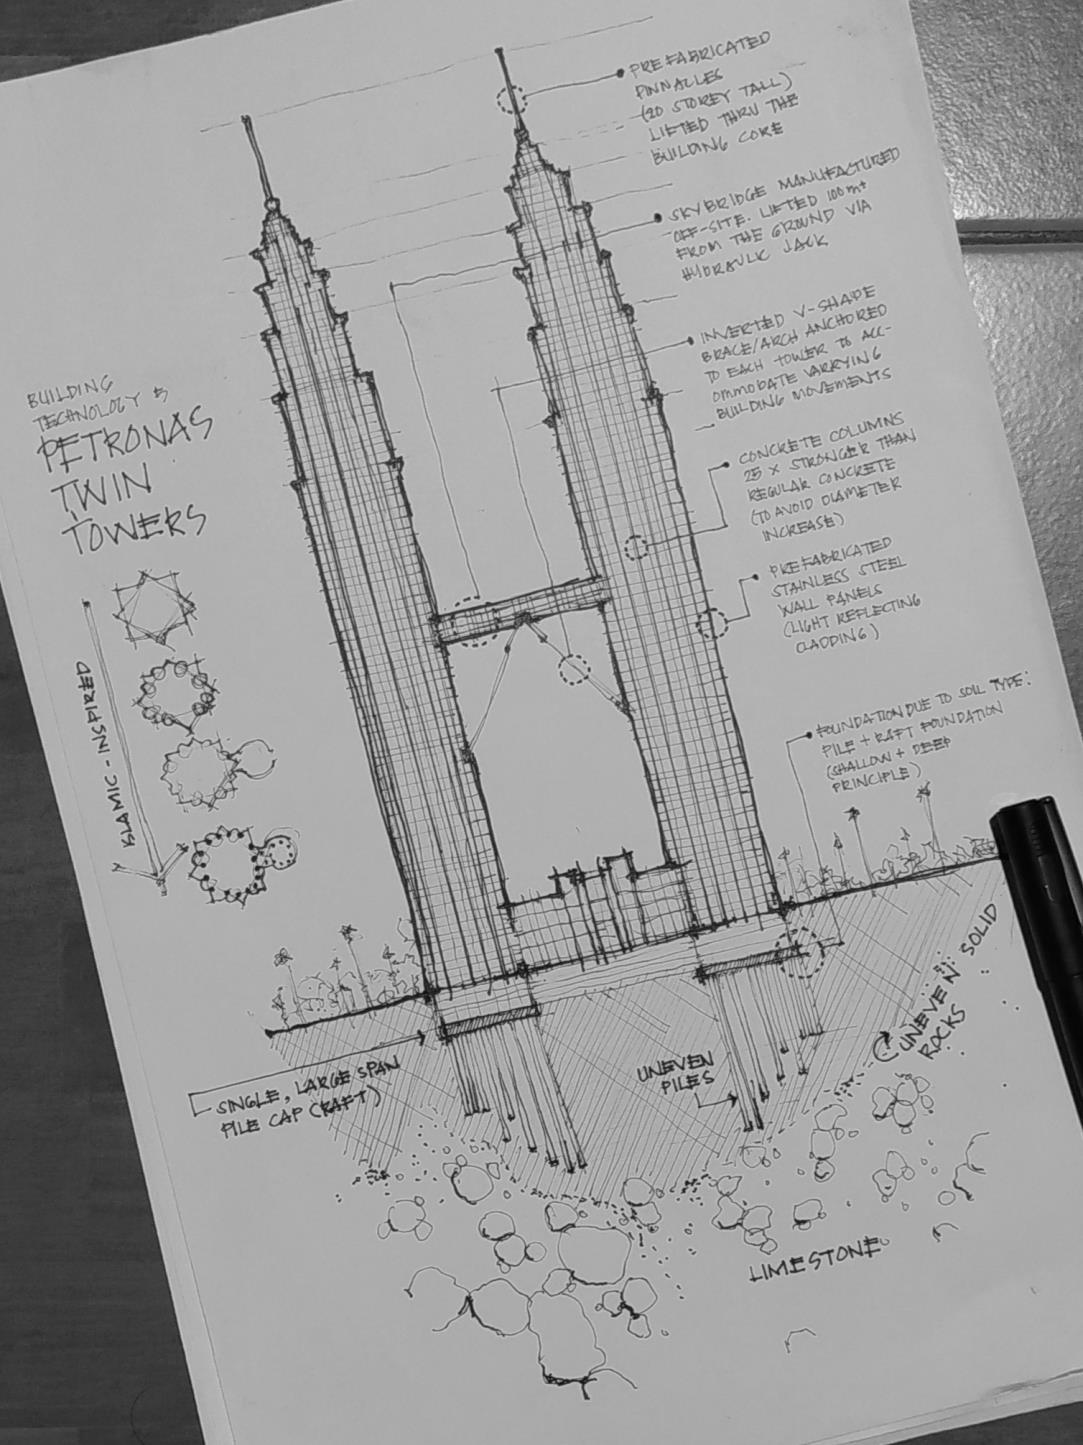 PREFABRICATED
PINNACLES
(20 STOREY TALL)
LIFTED THRU THE
BUILDING CORE
SKYBRIDGE MANUFACTURED
OFF-SITE. LIFTED 100m+
FROM THE GROUND VIA
HYDRAULIC JACK
INVERTED V-SHAPE
BRACE/ARCH ANCHORED
TO EACH TOWER TO ACC-
OMMODATE VARRYING
BUILDING MOVEMENTS
CONCRETE COLUMNS
25 X STRONGER THAN
REGULAR CONCRETE
(TO AVOID DIAMETER
INCREASE)
PREFABRICATED
STAINLESS STEEL
WALL PANELS
(LIGHT REFLECTING
CLADDING)
FOUNDATION DUE TO SOIL TYPE:
PILE + RAFT FOUNDATION
(SHALLOW + DEEP
PRINCIPLE)
BUILDING
TECHNOLOGY 5
PETRONAS
TWIN
TOWERS
ISLAMIC-INSPIRED
SINGLE, LARGE SPAN
PILE CAP (RAFT)
UNEVEN
PILES
UNEVEN SOLID
ROCKS
LIMESTONE